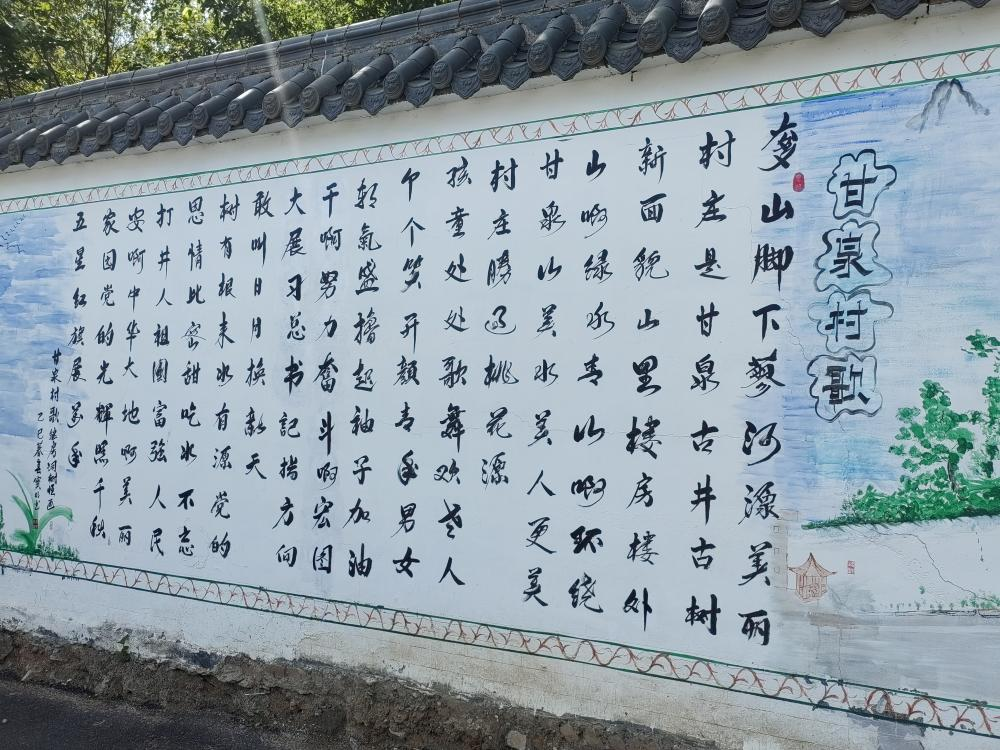 甘泉村歌
山脚下蓼河漾美丽
村庄是甘泉古井古树
新面貌山里楼房楼外
山啊绿水青山啊环绕
甘泉山美水美人更美
村庄勝过桃花源
孩童处处歌舞欢老人
个个笑开颜青年男女
朝氣盛擼起袖子加油
干啊努力奋斗啊宏图
大展习总书記指方向
敢叫日月换新天
树有根来水有源党的
恩情比蜜甜吃水不忘
打井人祖国富強人民
安啊中华大地啊美丽
家园党的光輝照千秋
五星红旗展万年
甘泉村歌